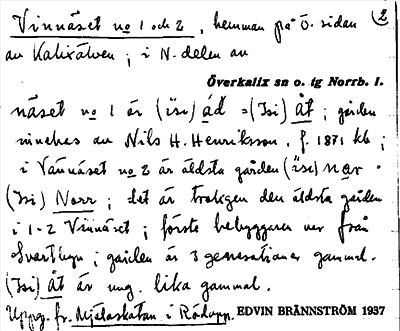 Vinnäset no 1 och 2, hemman på ö. sidan 2
av Kalixälven; i N. delen av
Överkalix sn o. tg Norrb. l.
näset no 1 är (isi) åd = (Isi) Åt; gården
innehas av Nils H. Henriksson, f. 1871 kb;
i Vännäset no 2 är äldsta gården (isi) nor
(Isi) Norr; det är troligen den äldsta gården
i 1-2 Vinnäset; förste bebyggaren var från
Svartbyn; gården är 3 generationer gammal.
(Isi) Åt är ung. lika gammal.
Uppg. fr. i Rödupp. EDVIN BRÄNNSTRÖM 1937